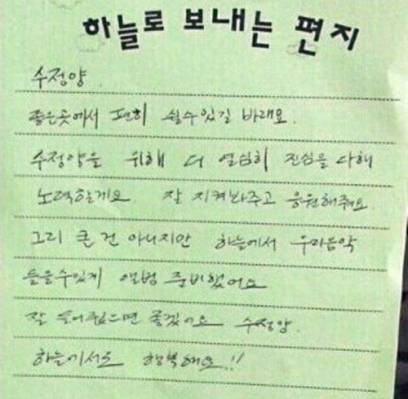 하늘로 보내는 편지
수정양.
좋은곳에서 편히 쉴수있길 바래요.
수정양을 위해 더 열심히 진심을 다해
노력할게요. 잘 지켜봐주고 응원해줘요
그리 큰 건 아니지만 하늘에서 우리음악
들을수있게 앨범 준비했어요
잘 들어줬으면 좋겠어요 수정양.
하늘에서도 행복해요!!